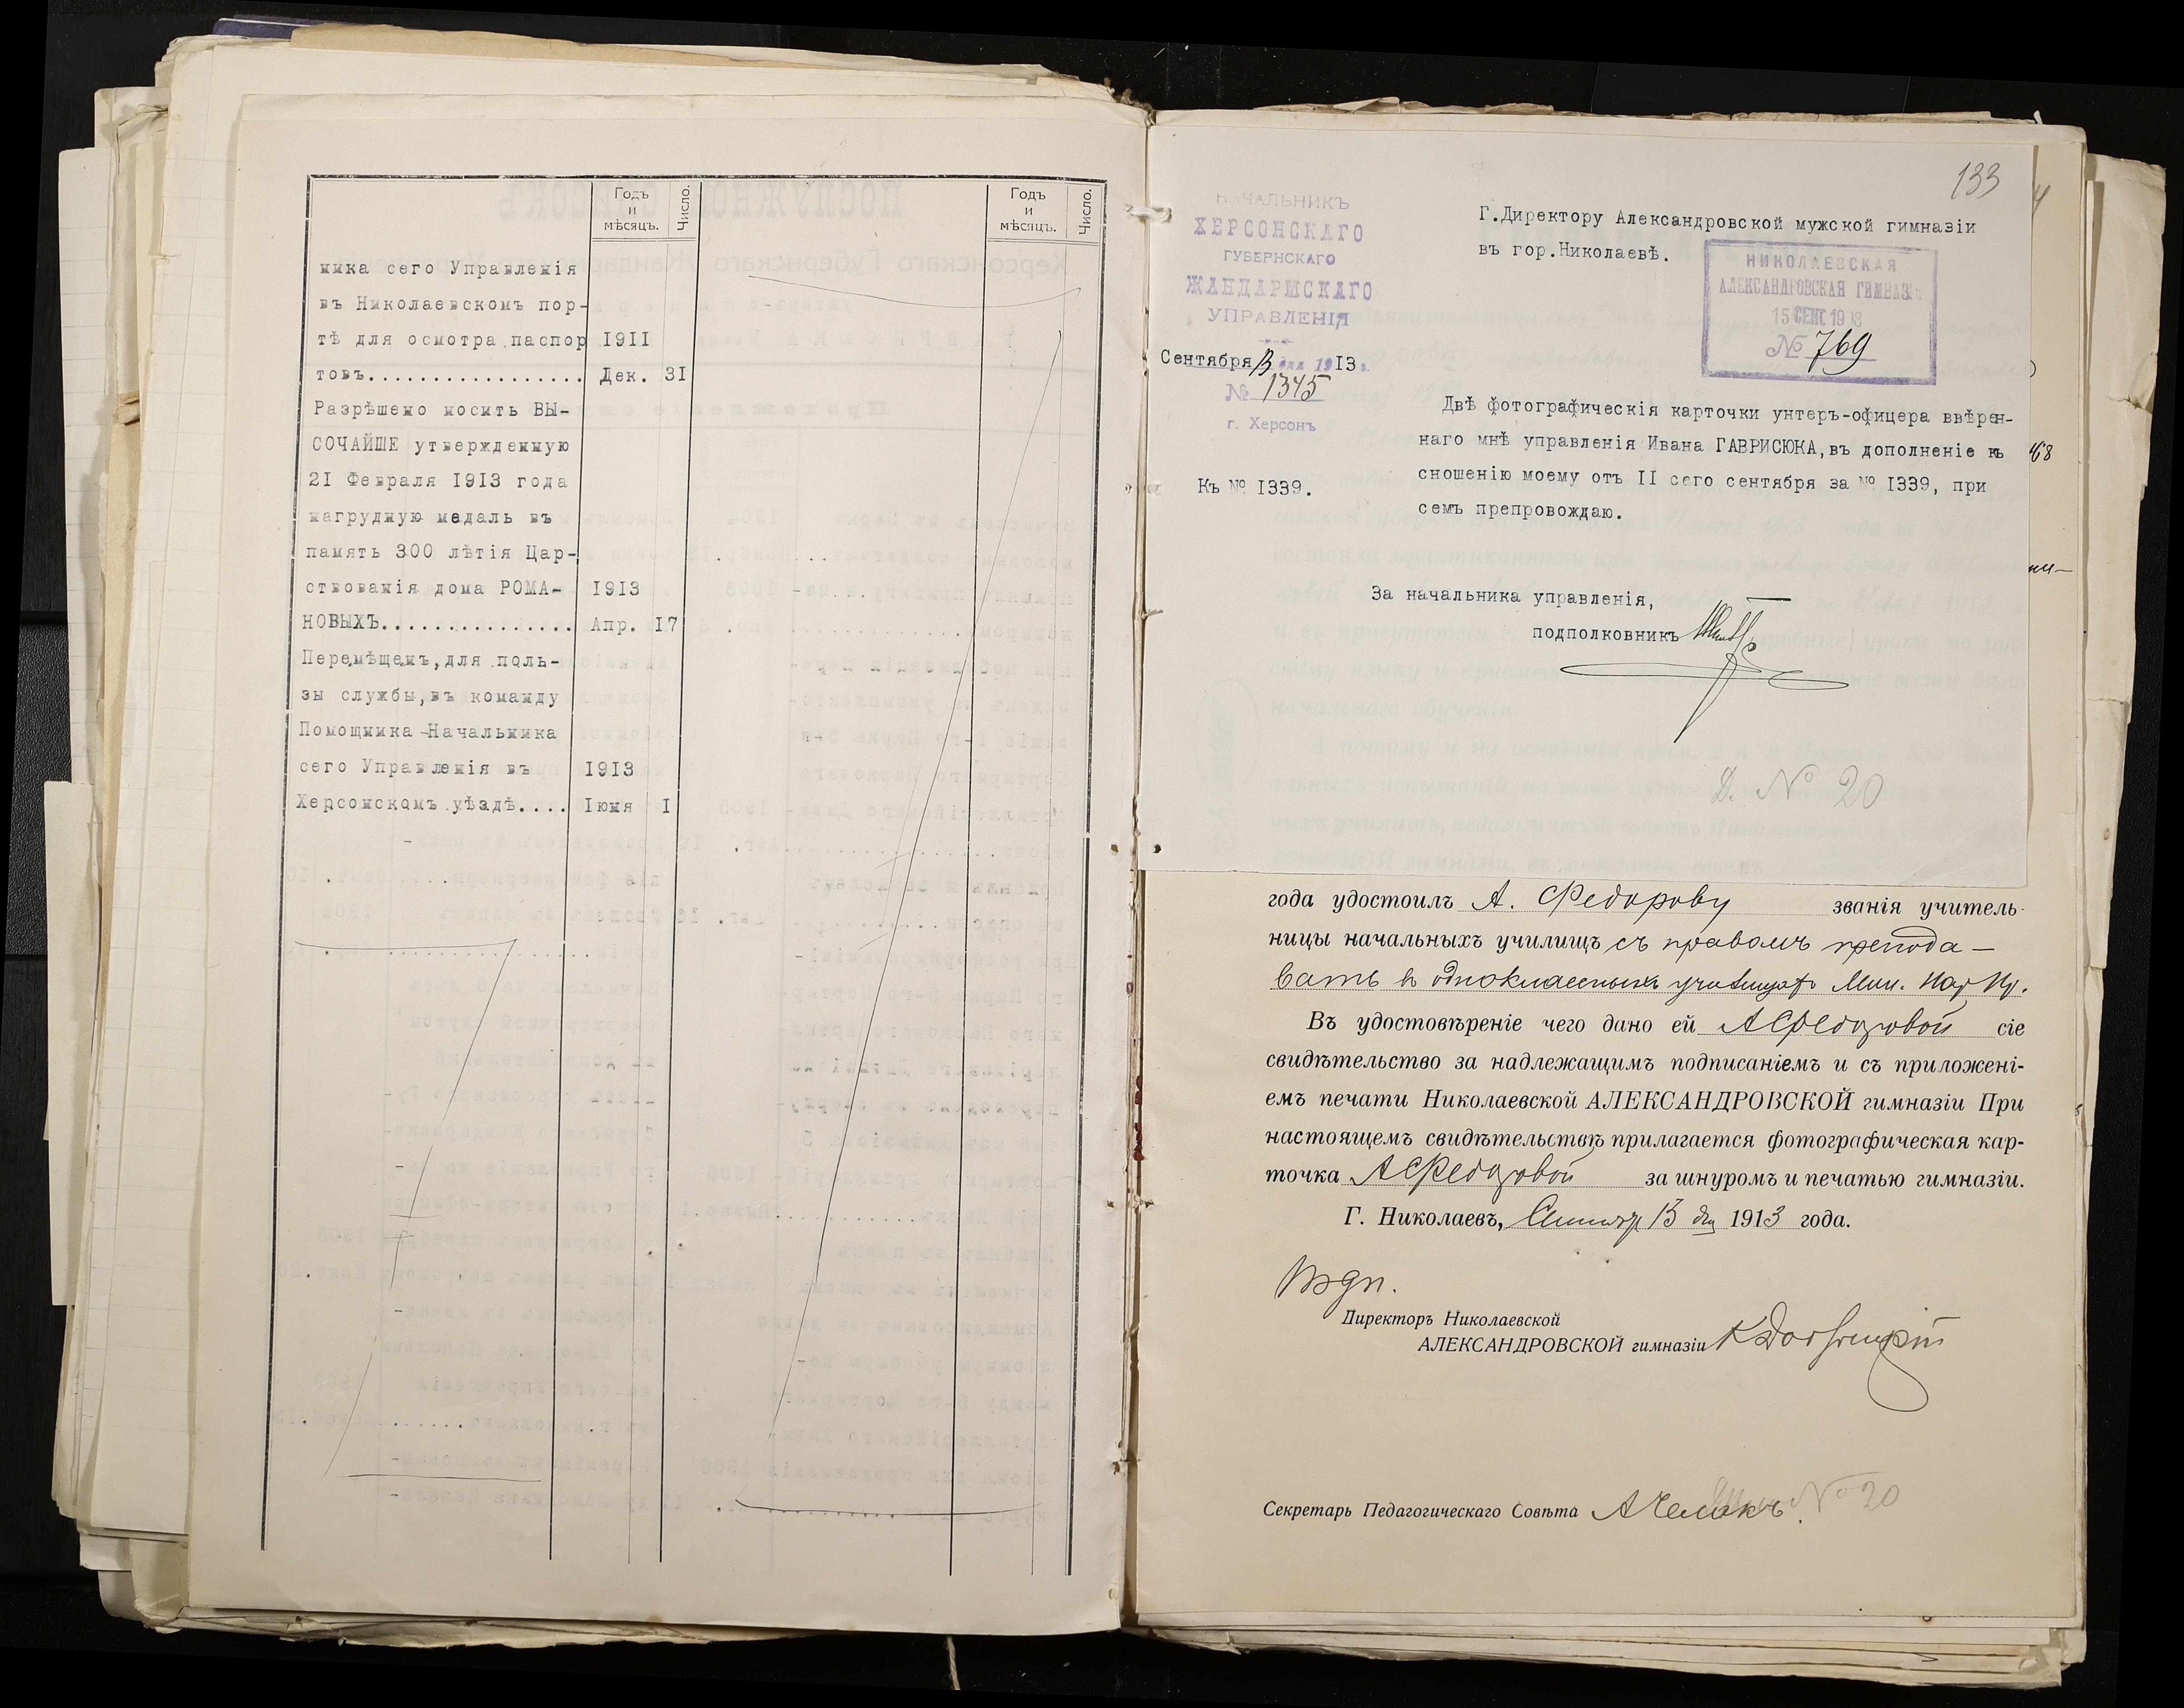 Годъ
и
мѣсяцъ.
Число.
Годъ
и
мѣсяцъ.
Число.
ника сего Управленія
въ Николаевскомъ пор-
тѣ для осмотра паспор 1911
товъ................. Дек. 31
Разрѣшено носить ВЫ-
СОЧАЙШЕ утвержденную
21 Февраля 1913 года
нагрудную медаль въ
память 300 лѣтія Цар-
ствованія дома РОМА- 1913
НОВЫХЪ............... Апр. 17
Перемѣщенъ, для поль-
зы службы, въ команду
Помощника Начальника
сего Управленія въ 1913
Херсонскомъ уѣздѣ.... Іюня I
133
НАЧАЛЬНИКЪ
ХЕРСОНСКАГО
ГУБЕРНСКАГО
ЖАНДАРМСКАГО
УПРАВЛЕНІЯ
Сентября 13 дня 1913 г.
№ 1345
г. Херсонъ
Къ № 1339.
Г.Директору Александровской мужской гимназіи
въ гор.Николаевѣ.
НИКОЛАЕВСКАЯ
АЛЕКСАНДРОВСКАЯ ГИМНАЗІЯ
15 СЕНТ 1913
№ 769
Двѣ фотографическія карточки унтеръ-офицера ввѣрен-
наго мнѣ управленія Ивана ГАВРИСЮКА, въ дополненіе къ
сношенію моему отъ II сего сентября за № 1339, при
семъ препровождаю.
За начальника управленія,
подполковникъ
Д. № 20
года удостоилъ А. Федорову званія учитель-
ницы начальныхъ училищъ съ правомъ препода-
вать въ одноклассныхъ училищахъ Мин. Нар. Пр.
Въ удостовѣреніе чего дано ей А Федоровой сіе
свидѣтельство за надлежащимъ подписаніемъ и съ приложені-
емъ печати Николаевской АЛЕКСАНДРОВСКОЙ гимназіи При
настоящемъ свидѣтельствѣ прилагается фотографическая кар-
точка А Федоровой за шнуромъ и печатью гимназіи.
Г. Николаевъ, Сентябр 13 дня 1913 года.
Директоръ Николаевской
АЛЕКСАНДРОВСКОЙ гимназіи
Секретарь Педагогическаго Совѣта
№ 20